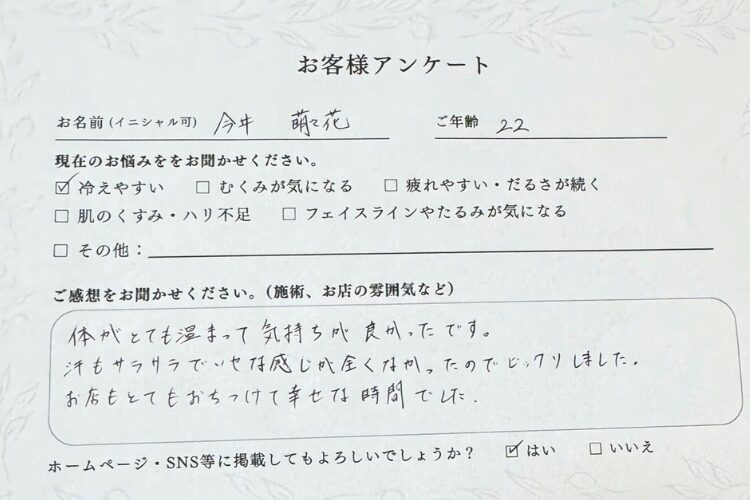 お客様アンケート
お名前(イニシャル可) 今井 萌々花 ご年齢 22
現在のお悩みををお聞かせください。
☑ 冷えやすい ☐ むくみが気になる ☐ 疲れやすい・だるさが続く
☐ 肌のくすみ・ハリ不足 ☐ フェイスラインやたるみが気になる
☐ その他：
ご感想をお聞かせください。(施術、お店の雰囲気など)
体がとても温まって気持ちが良かったです。
汗もサラサラでイヤな感じが全くなかったのでビックリしました。
お店もとてもおちつけて幸せな時間でした.
ホームページ・SNS等に掲載してもよろしいでしょうか？ ☑ はい ☐ いいえ